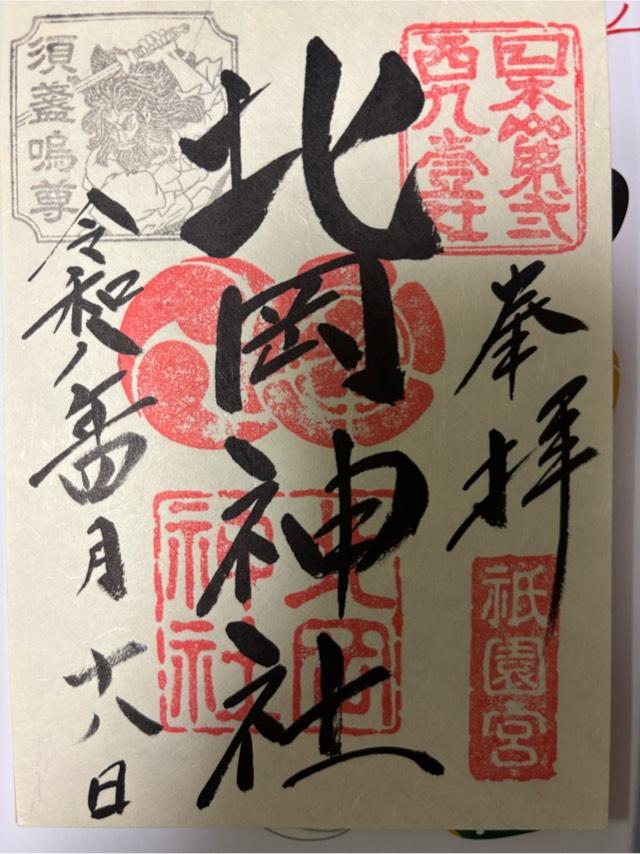 日本第弐
西九壹社
奉拝
祇園宮
北岡神社
北岡
神社
須盞嗚尊
令和八年四月十八日